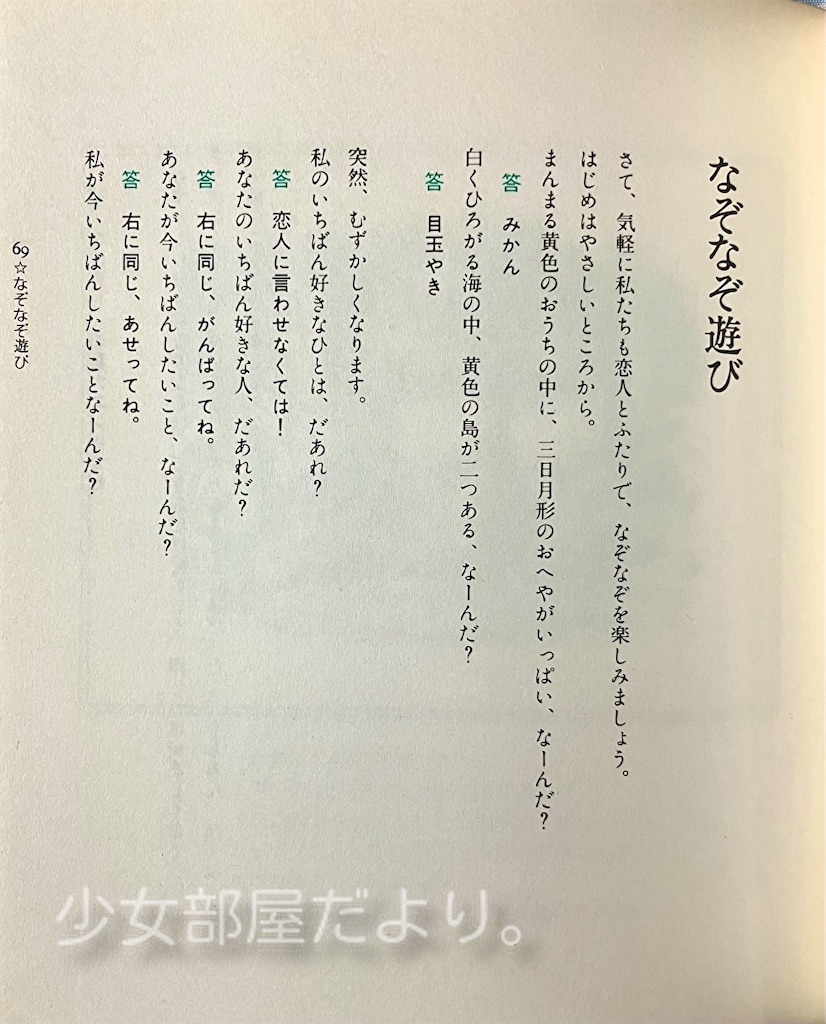 なぞなぞ遊び
さて、気軽に私たちも恋人とふたりで、なぞなぞを楽しみましょう。
はじめはやさしいところから。
まんまる黄色のおうちの中に、三日月形のおへやがいっぱい、なーんだ？
答 みかん
白くひろがる海の中、黄色の島が二つある、なーんだ？
答 目玉やき
突然、むずかしくなります。
私のいちばん好きなひとは、だあれ？
答 恋人に言わせなくては！
あなたのいちばん好きな人、だあれだ？
答 右に同じ、がんばってね。
あなたが今いちばんしたいこと、なーんだ？
答 右に同じ、あせってね。
私が今いちばんしたいことなーんだ？
69☆なぞなぞ遊び
少女部屋だより。